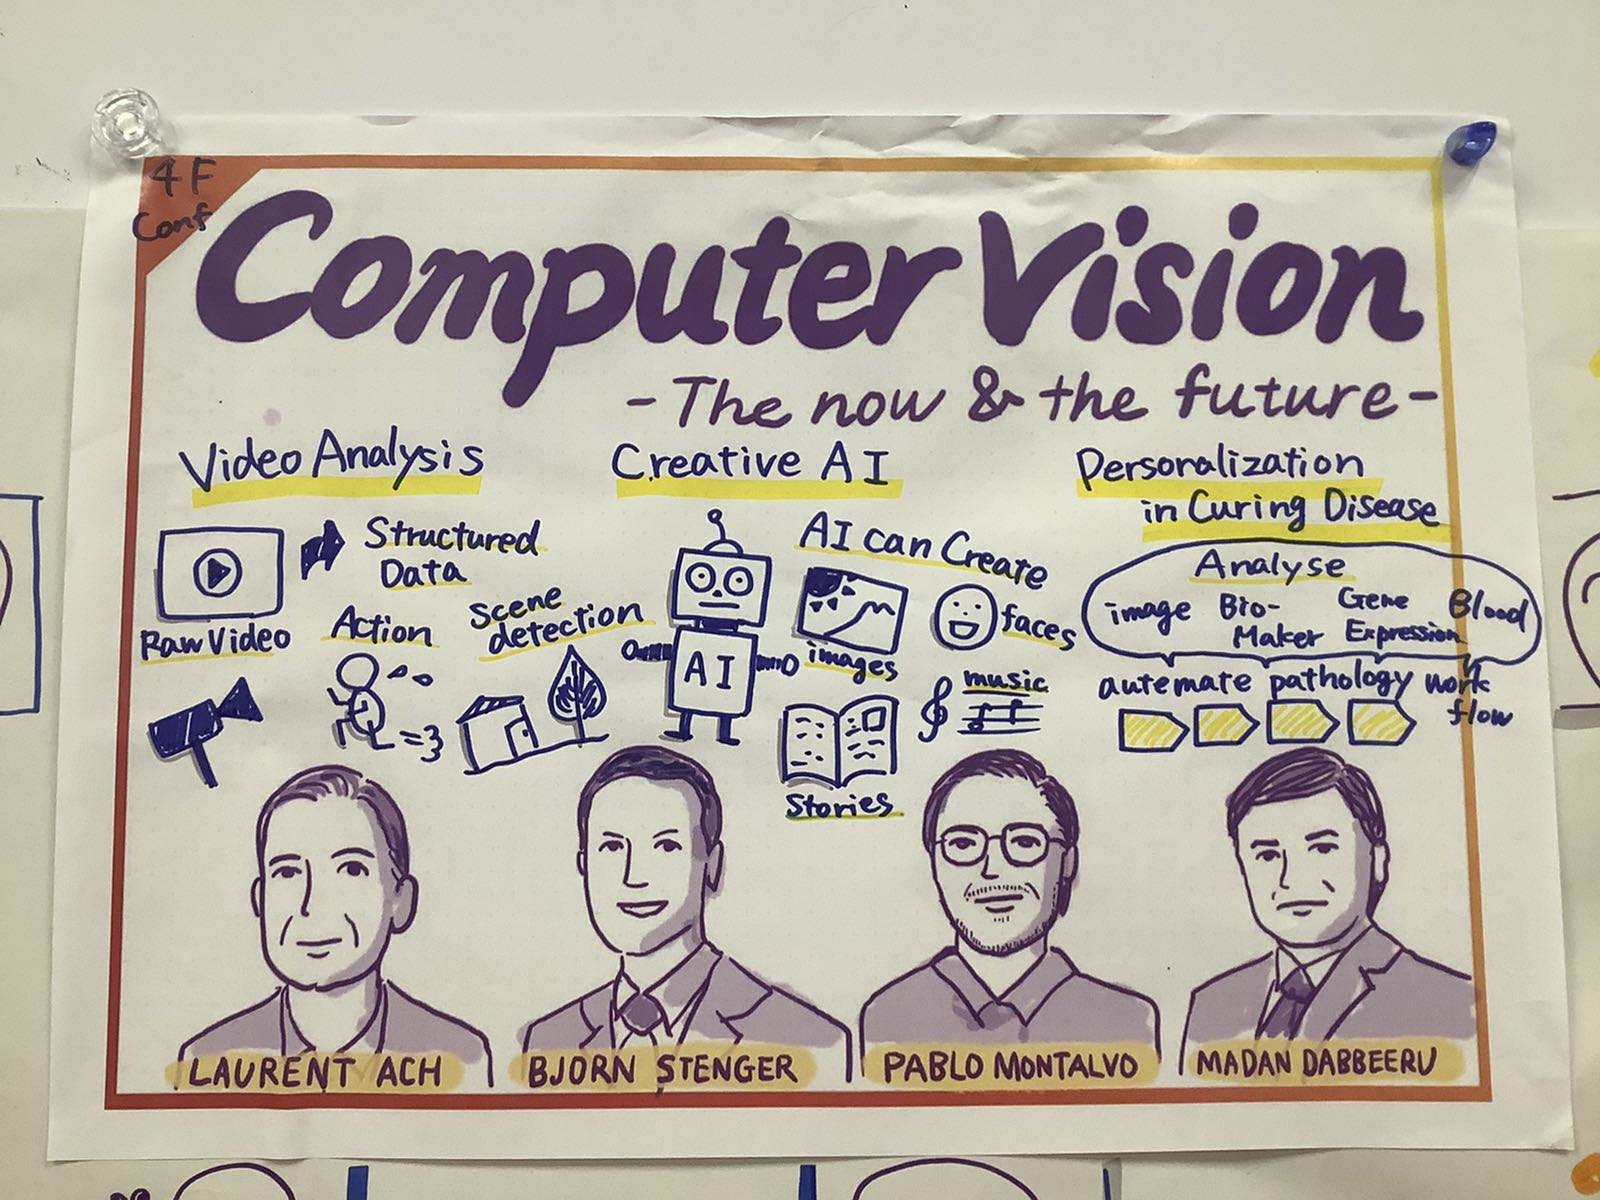 4F
Conf
Computer Vision
- The now & the future -
Video Analysis
Structured
Data
Raw Video
Action
scene
detection
Creative AI
AI can Create
AI
images
faces
music
stories
Personalization
in Curing Disease
Analyse
image
Bio-
Maker
Gene
Expression
Blood
automate pathology work
flow
LAURENT ACH
BJORN STENGER
PABLO MONTALVO
MADAN DABBEERU